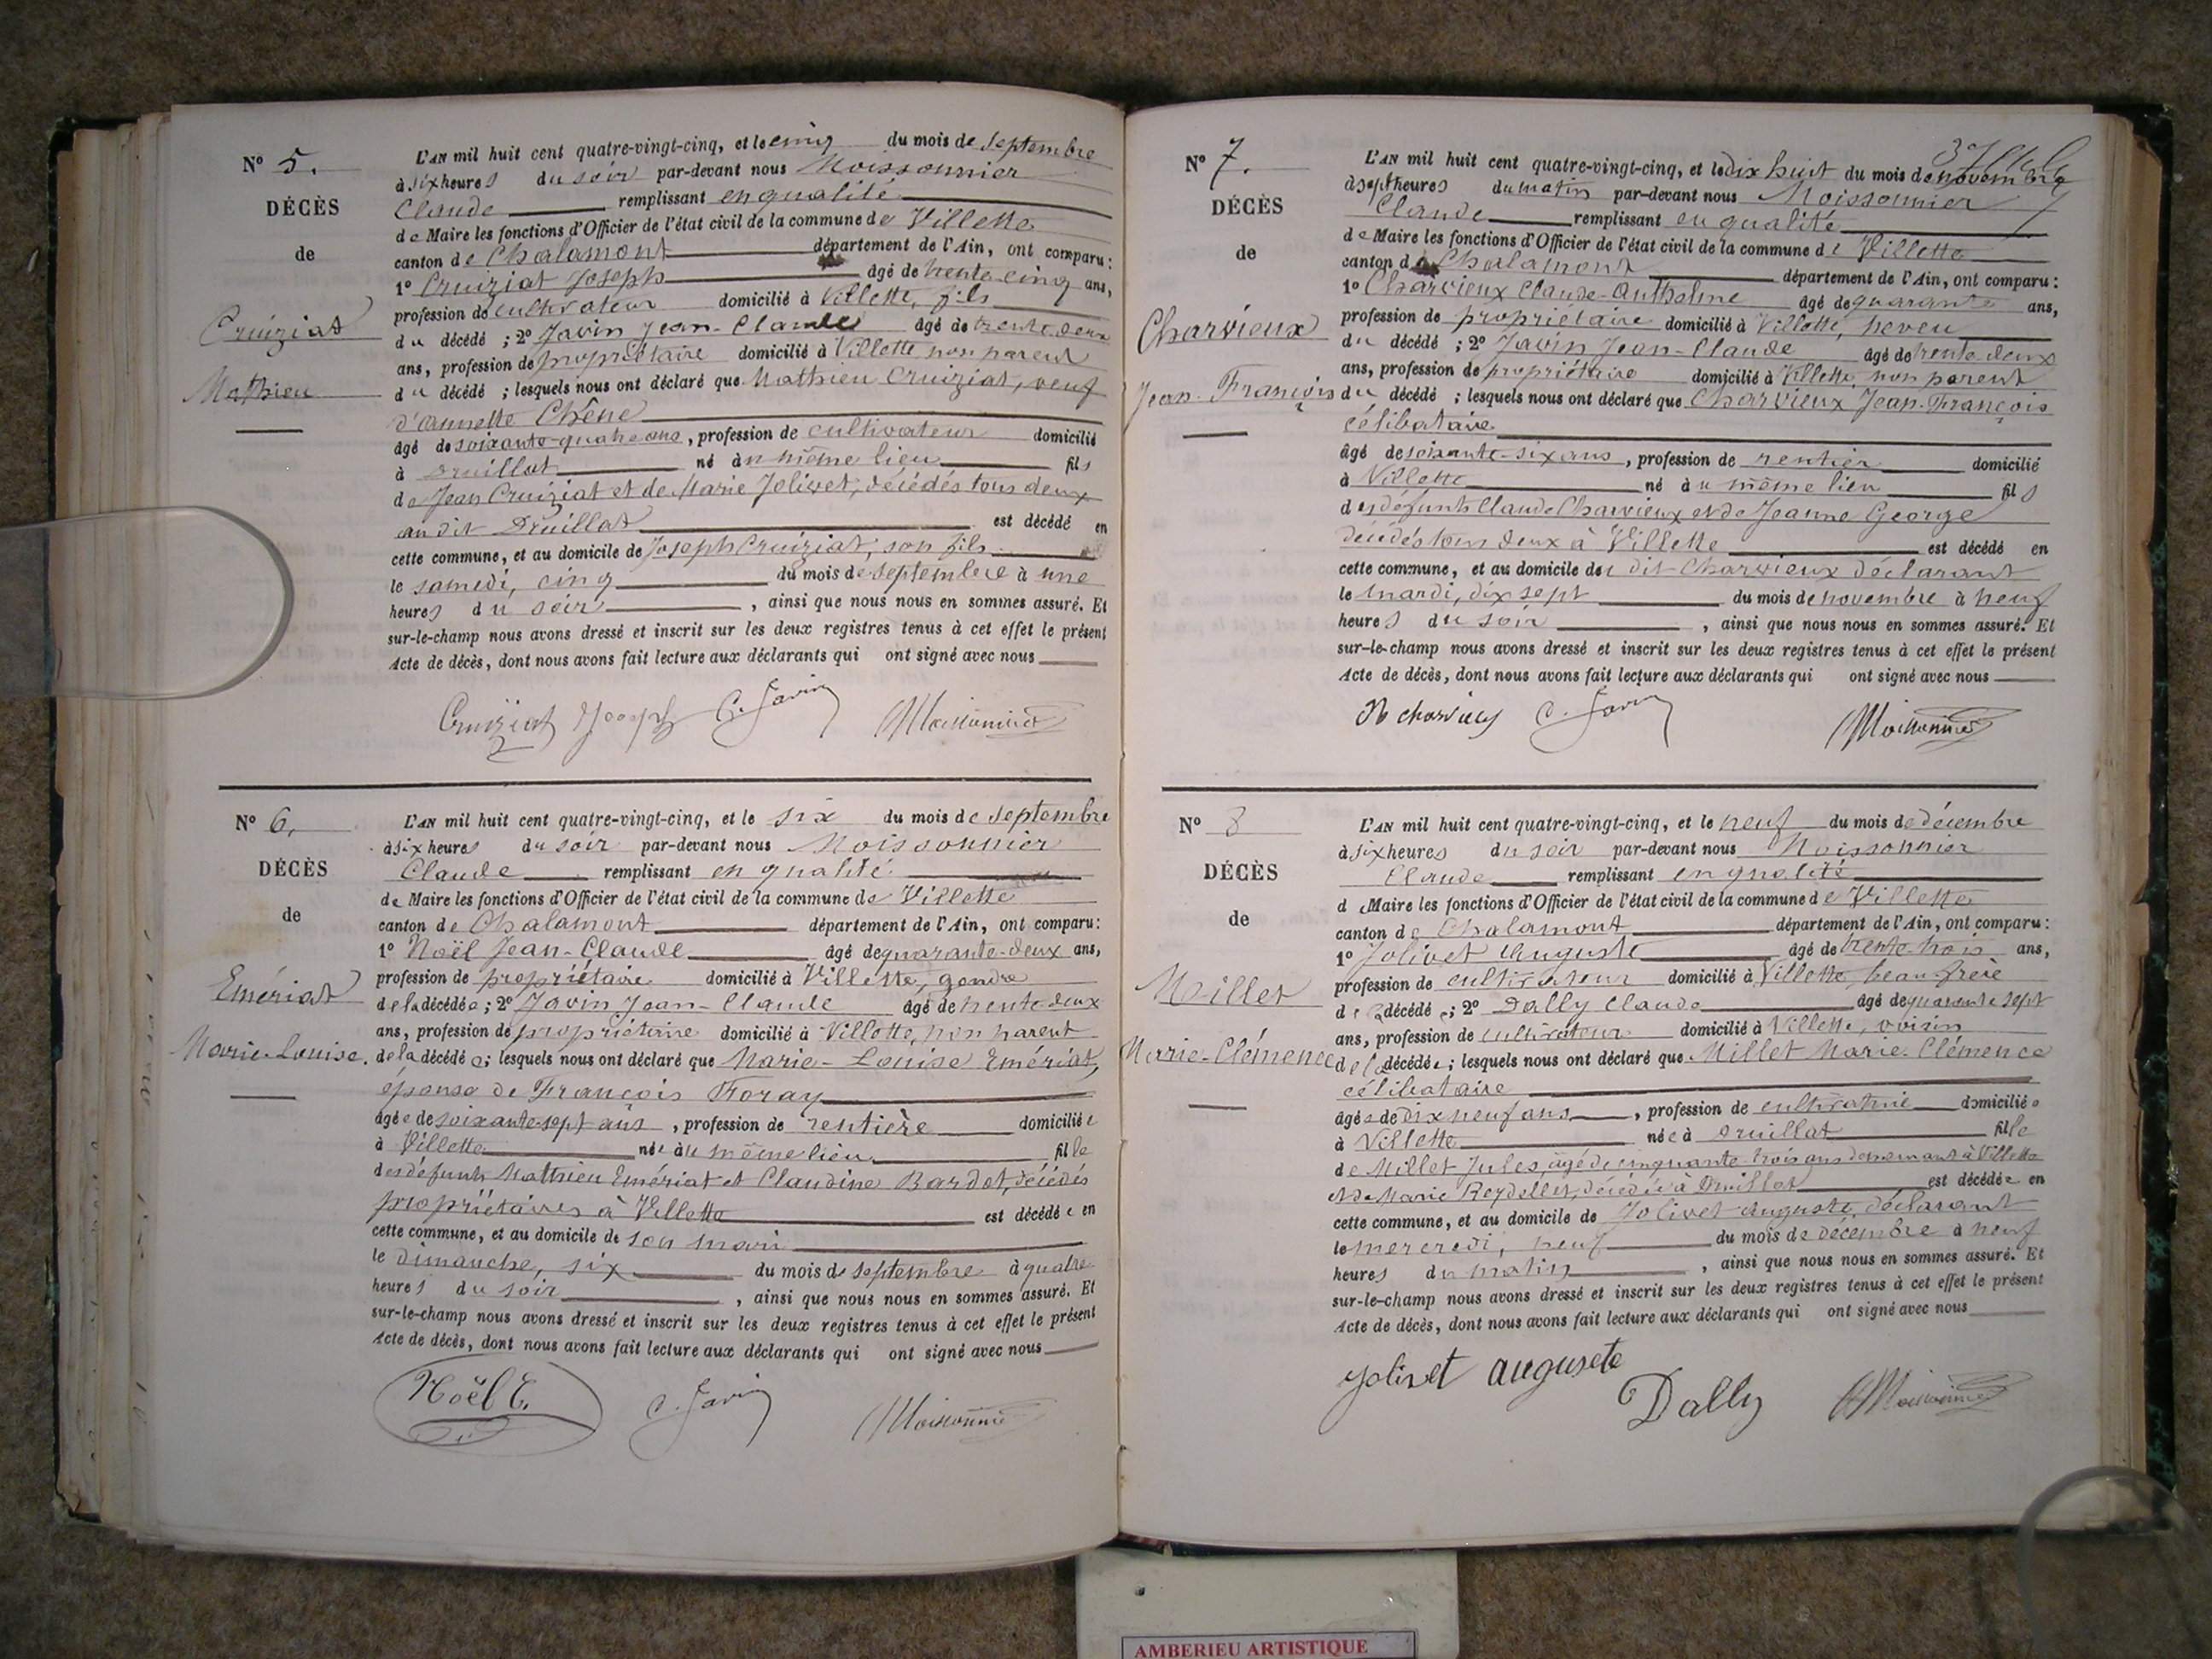 N° 5.
DÉCÈS
de
Cruiziat
Mathieu
L'AN mil huit cent quatre-vingt-cinq, et le cinq du mois de septembre
à six heures du soir par-devant nous Moissonnier
Claude remplissant en qualité
de Maire les fonctions d'Officier de l'état civil de la commune de Villette
canton de Chalamont département de l'Ain, ont comparu:
1° Cruiziat Joseph âgé de trente cinq ans,
profession de cultivateur domicilié à Villette, fils
du décédé ; 2° Javin Jean-Claude âgé de trente deux
ans, profession de propriétaire domicilié à Villette, non parent
du décédé ; lesquels nous ont déclaré que Mathieu Cruiziat, veuf
d'Annette Chêne
âgé de soixante-quatre ans, profession de cultivateur domicilié
à Druillat né au même lieu fils
de Jean Cruiziat et de Marie Jolivet, décédés tous deux
au dit Druillat est décédé en
cette commune, et au domicile de Joseph Cruiziat, son fils
le samedi, cinq du mois de septembre à une
heures du soir, ainsi que nous nous en sommes assuré. Et
sur-le-champ nous avons dressé et inscrit sur les deux registres tenus à cet effet le présent
Acte de décès, dont nous avons fait lecture aux déclarants qui ont signé avec nous
Cruiziat Joseph C. Javin Moissonnier
N° 6.
DÉCÈS
de
Emériat
Marie-Louise.
L'AN mil huit cent quatre-vingt-cinq, et le six du mois de septembre
à six heures du soir par-devant nous Moissonnier
Claude remplissant en qualité
de Maire les fonctions d'Officier de l'état civil de la commune de Villette
canton de Chalamont département de l'Ain, ont comparu:
1° Noël Jean-Claude âgé de quarante-deux ans,
profession de propriétaire domicilié à Villette, gendre
de la décédée ; 2° Javin Jean-Claude âgé de trente-deux
ans, profession de propriétaire domicilié à Villette, non parent
de la décédée ; lesquels nous ont déclaré que Marie-Louise Emériat,
épouse de François Foray
âgée de soixante-sept ans, profession de rentière domiciliée
à Villette née au même lieu fille
des défunts Mathieu Emériat et Claudine Bardot, décédés
propriétaires à Villette est décédée en
cette commune, et au domicile de son mari
le dimanche, six du mois de septembre à quatre
heures du soir, ainsi que nous nous en sommes assuré. Et
sur-le-champ nous avons dressé et inscrit sur les deux registres tenus à cet effet le présent
Acte de décès, dont nous avons fait lecture aux déclarants qui ont signé avec nous
Noël C. C. Javin Moissonnier
N° 7.
DÉCÈS
de
Charvieux
Jean-François
L'AN mil huit cent quatre-vingt-cinq, et le dix huit du mois de novembre
à sept heures du matin par-devant nous Moissonnier
Claude remplissant en qualité
de Maire les fonctions d'Officier de l'état civil de la commune de Villette
canton de Chalamont département de l'Ain, ont comparu:
1° Charvieux Claude-Anthelme âgé de quarante ans,
profession de propriétaire domicilié à Villette, neveu
du décédé ; 2° Javin Jean-Claude âgé de trente-deux
ans, profession de propriétaire domicilié à Villette, non parent
du décédé ; lesquels nous ont déclaré que Charvieux Jean-François
célibataire
âgé de soixante-six ans, profession de rentier domicilié
à Villette né au même lieu fils
des défunts Claude Charvieux et de Jeanne George
décédés tous deux à Villette est décédé en
cette commune, et au domicile du dit Charvieux déclarant
le mardi, dix sept du mois de novembre à neuf
heures du soir, ainsi que nous nous en sommes assuré. Et
sur-le-champ nous avons dressé et inscrit sur les deux registres tenus à cet effet le présent
Acte de décès, dont nous avons fait lecture aux déclarants qui ont signé avec nous
C. Javin Moissonnier
N° 8
DÉCÈS
de
Millet
Marie-Clémence
L'AN mil huit cent quatre-vingt-cinq, et le neuf du mois de décembre
à six heures du soir par-devant nous Moissonnier
Claude remplissant en qualité
de Maire les fonctions d'Officier de l'état civil de la commune de Villette
canton de Chalamont département de l'Ain, ont comparu:
1° Jolivet Auguste âgé de trente-trois ans,
profession de cultivateur domicilié à Villette, beau-frère
de la décédée ; 2° Dally Claude âgé de quarante sept
ans, profession de cultivateur domicilié à Villette, voisin
de la décédée ; lesquels nous ont déclaré que Millet Marie-Clémence
célibataire
âgée de dix neuf ans, profession de cultivatrice domiciliée
à Villette née à Druillat fille
de Millet Jules, âgé de cinquante-trois ans demeurant à Villette
et de Marie Reydellet, décédée à Druillat est décédée en
cette commune, et au domicile de Jolivet Auguste, déclarant
le mercredi, neuf du mois de décembre à neuf
heures du matin, ainsi que nous nous en sommes assuré. Et
sur-le-champ nous avons dressé et inscrit sur les deux registres tenus à cet effet le présent
Acte de décès, dont nous avons fait lecture aux déclarants qui ont signé avec nous
Jolivet auguste
Dally Moissonnier
AMBERIEU ARTISTIQUE